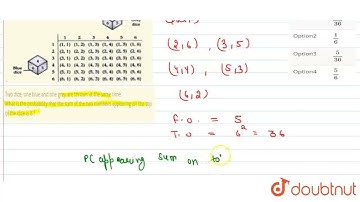 1 2 3 4 5 6
1 (1, 1) (1, 2) (1, 3) (1, 4) (1, 5) (1, 6)
2 (2, 1) (2, 2) (2, 3) (2, 4) (2, 5) (2, 6)
3 (3, 1) (3, 2) (3, 3) (3, 4) (3, 5) (3, 6)
Blue dice
4 (4, 1) (4, 2) (4, 3) (4, 4) (4, 5) (4, 6)
5 (5, 1) (5, 2) (5, 3) (5, 4) (5, 5) (5, 6)
6 (6, 1) (6, 2) (6, 3) (6, 4) (6, 5) (6, 6)
Two dice, one blue and one grey, are thrown at the same time.
What is the probability that the sum of the two numbers appearing on the top of the dice is 8?
36
Option2 1/6
Option3 5/36
Option4 5/6
(2,6) , (3,5)
(4,4) , (5,3)
(6,2)
F.O. = 5
T.O = 6² = 36
P( appearing sum on to
doubtnut